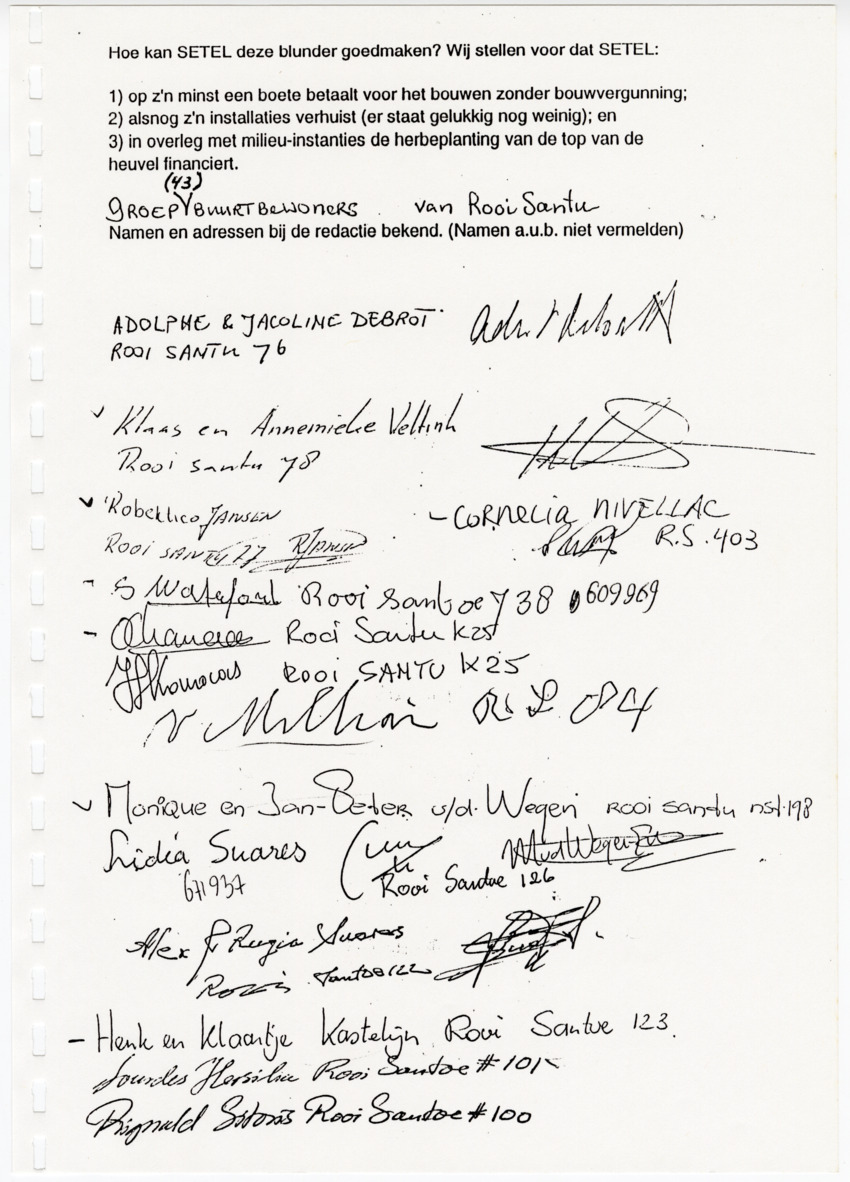 Hoe kan SETEL deze blunder goedmaken? Wij stellen voor dat SETEL:
1) op z'n minst een boete betaalt voor het bouwen zonder bouwvergunning;
2) alsnog z'n installaties verhuist (er staat gelukkig nog weinig); en
3) in overleg met milieu-instanties de herbeplanting van de top van de
heuvel financiert.
(43)
GROEP BUURTBEWONERS van Rooi Santu
Namen en adressen bij de redactie bekend. (Namen a.u.b. niet vermelden)
ADOLPHE & JACOLINE DEBROT
ROOI SANTU 76
Klaas en Annemieke Veltink
Rooi santu 78
JANSEN
Rooi SANTU 77 RJansen
- CORNELIA NIVELLAC
R.S. 403
- S Rooi santoe 738 609969
- Rooi Santu K25
ROOI SANTU K25
084
Monique en Jan-Peter v/d. Wegen rooi santu nst. 198
Lidia Suares
671937
Rooi Santoe 126
Alex & Suares
Santoe 122
- Henk en Klaartje Kastelijn Rooi Santoe 123.
Lourdes Rooi Santoe # 101
Rignald Rooi Santoe # 100